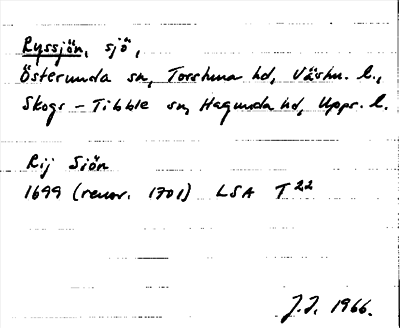 Ryssjön, sjö,
Österunda sn, Torstuna hd, Västm. l.,
Skogs-Tibble sn, Hagunda hd, Upps. l.
Rij Siön
1699 (renov. 1701) LSA T 22
J.J. 1966.